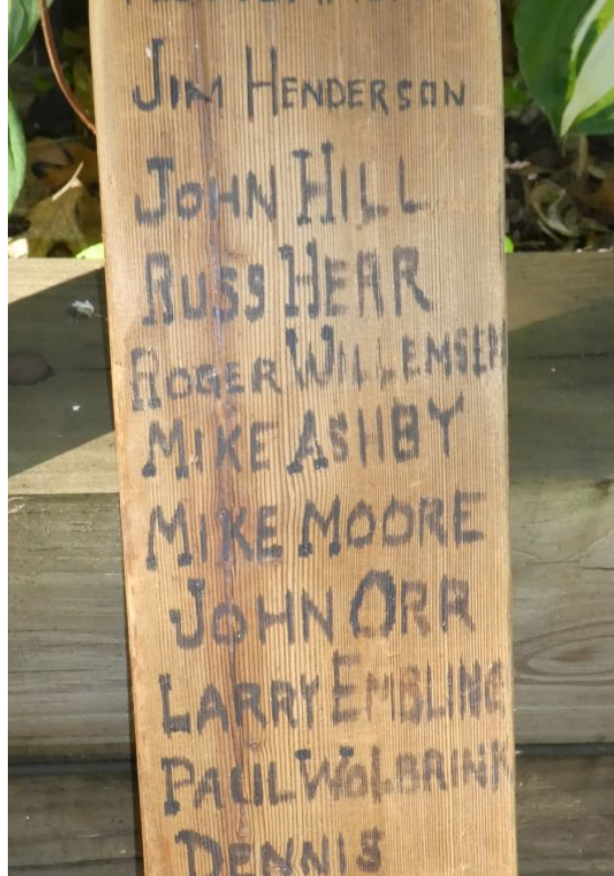 Jim Henderson
John Hill
Russ Hear
Roger Willemsen
Mike Ashby
Mike Moore
John Orr
Larry Embling
Paul Wolbrink
Dennis